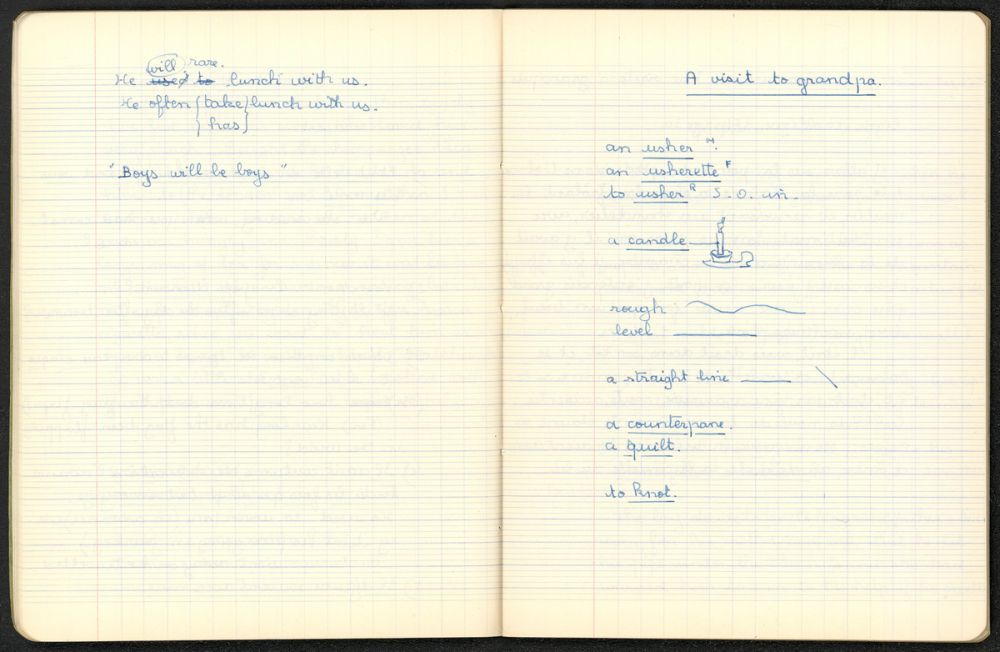 will rare.
He used to lunch with us.
He often {take} lunch with us.
{has}
"Boys will be boys"
A visit to grandpa.
an usher M.
an usherette F
to usher R S.O. in.
a candle
rough
level
a straight line
a counterpane.
a quilt.
to knot.